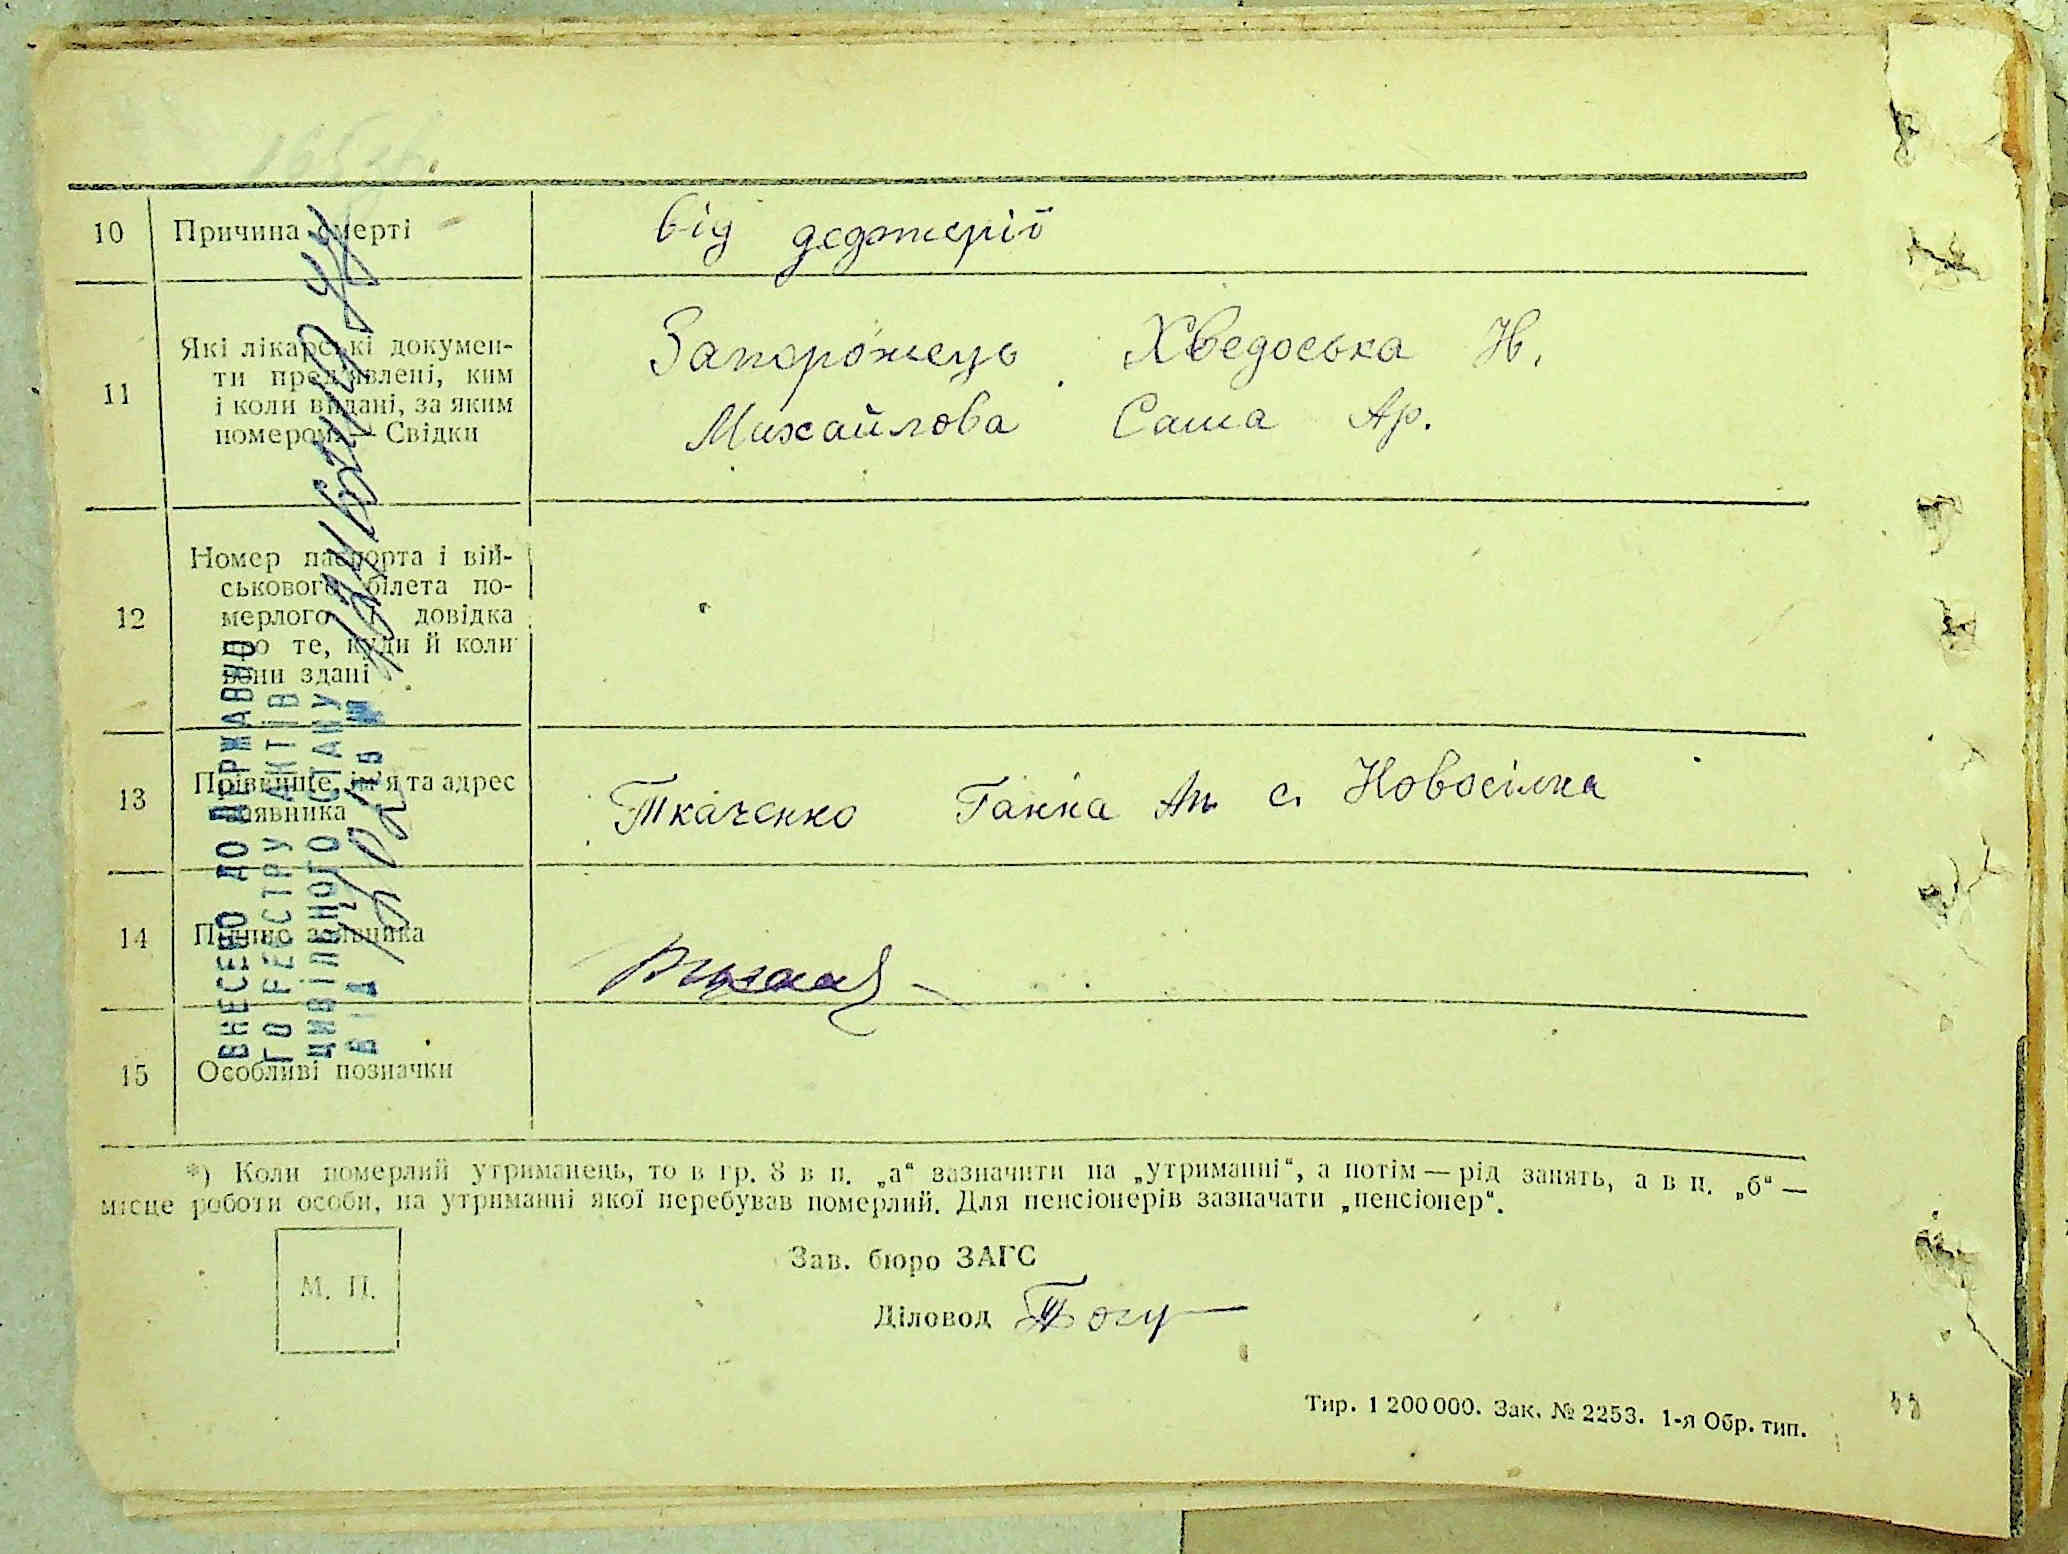 165зв.
10 Причина смерті
від дедтерії
11 Які лікарські докумен-
ти пред'явлені, ким
і коли видані, за яким
номером.— Свідки
Запорожець Хведоська Н.
Михайлова Саша Ар.
12 Номер паспорта і вій-
ськового білета по-
мерлого і довідка
про те, куди й коли
вони здані
13 Прізвище, ім'я та адрес
заявника
Ткаченко Ганна Ан с. Новосілка
14 Підпис заявника
15 Особливі позначки
ВНЕСЕНО ДО ДЕРЖАВНО
ГО РЕЄСТРУ АКТІВ
ЦИВІЛЬНОГО СТАНУ
ВІД
*) Коли померлий утриманець, то в гр. 8 в п. „а“ зазначити на „утриманні“, а потім — рід занять, а в п. „б“ —
місце роботи особи, на утриманні якої перебував померлий. Для пенсіонерів зазначати „пенсіонер“.
М. П.
Зав. бюро ЗАГС
Діловод
Тир. 1 200 000. Зак. № 2253. 1-я Обр. тип.